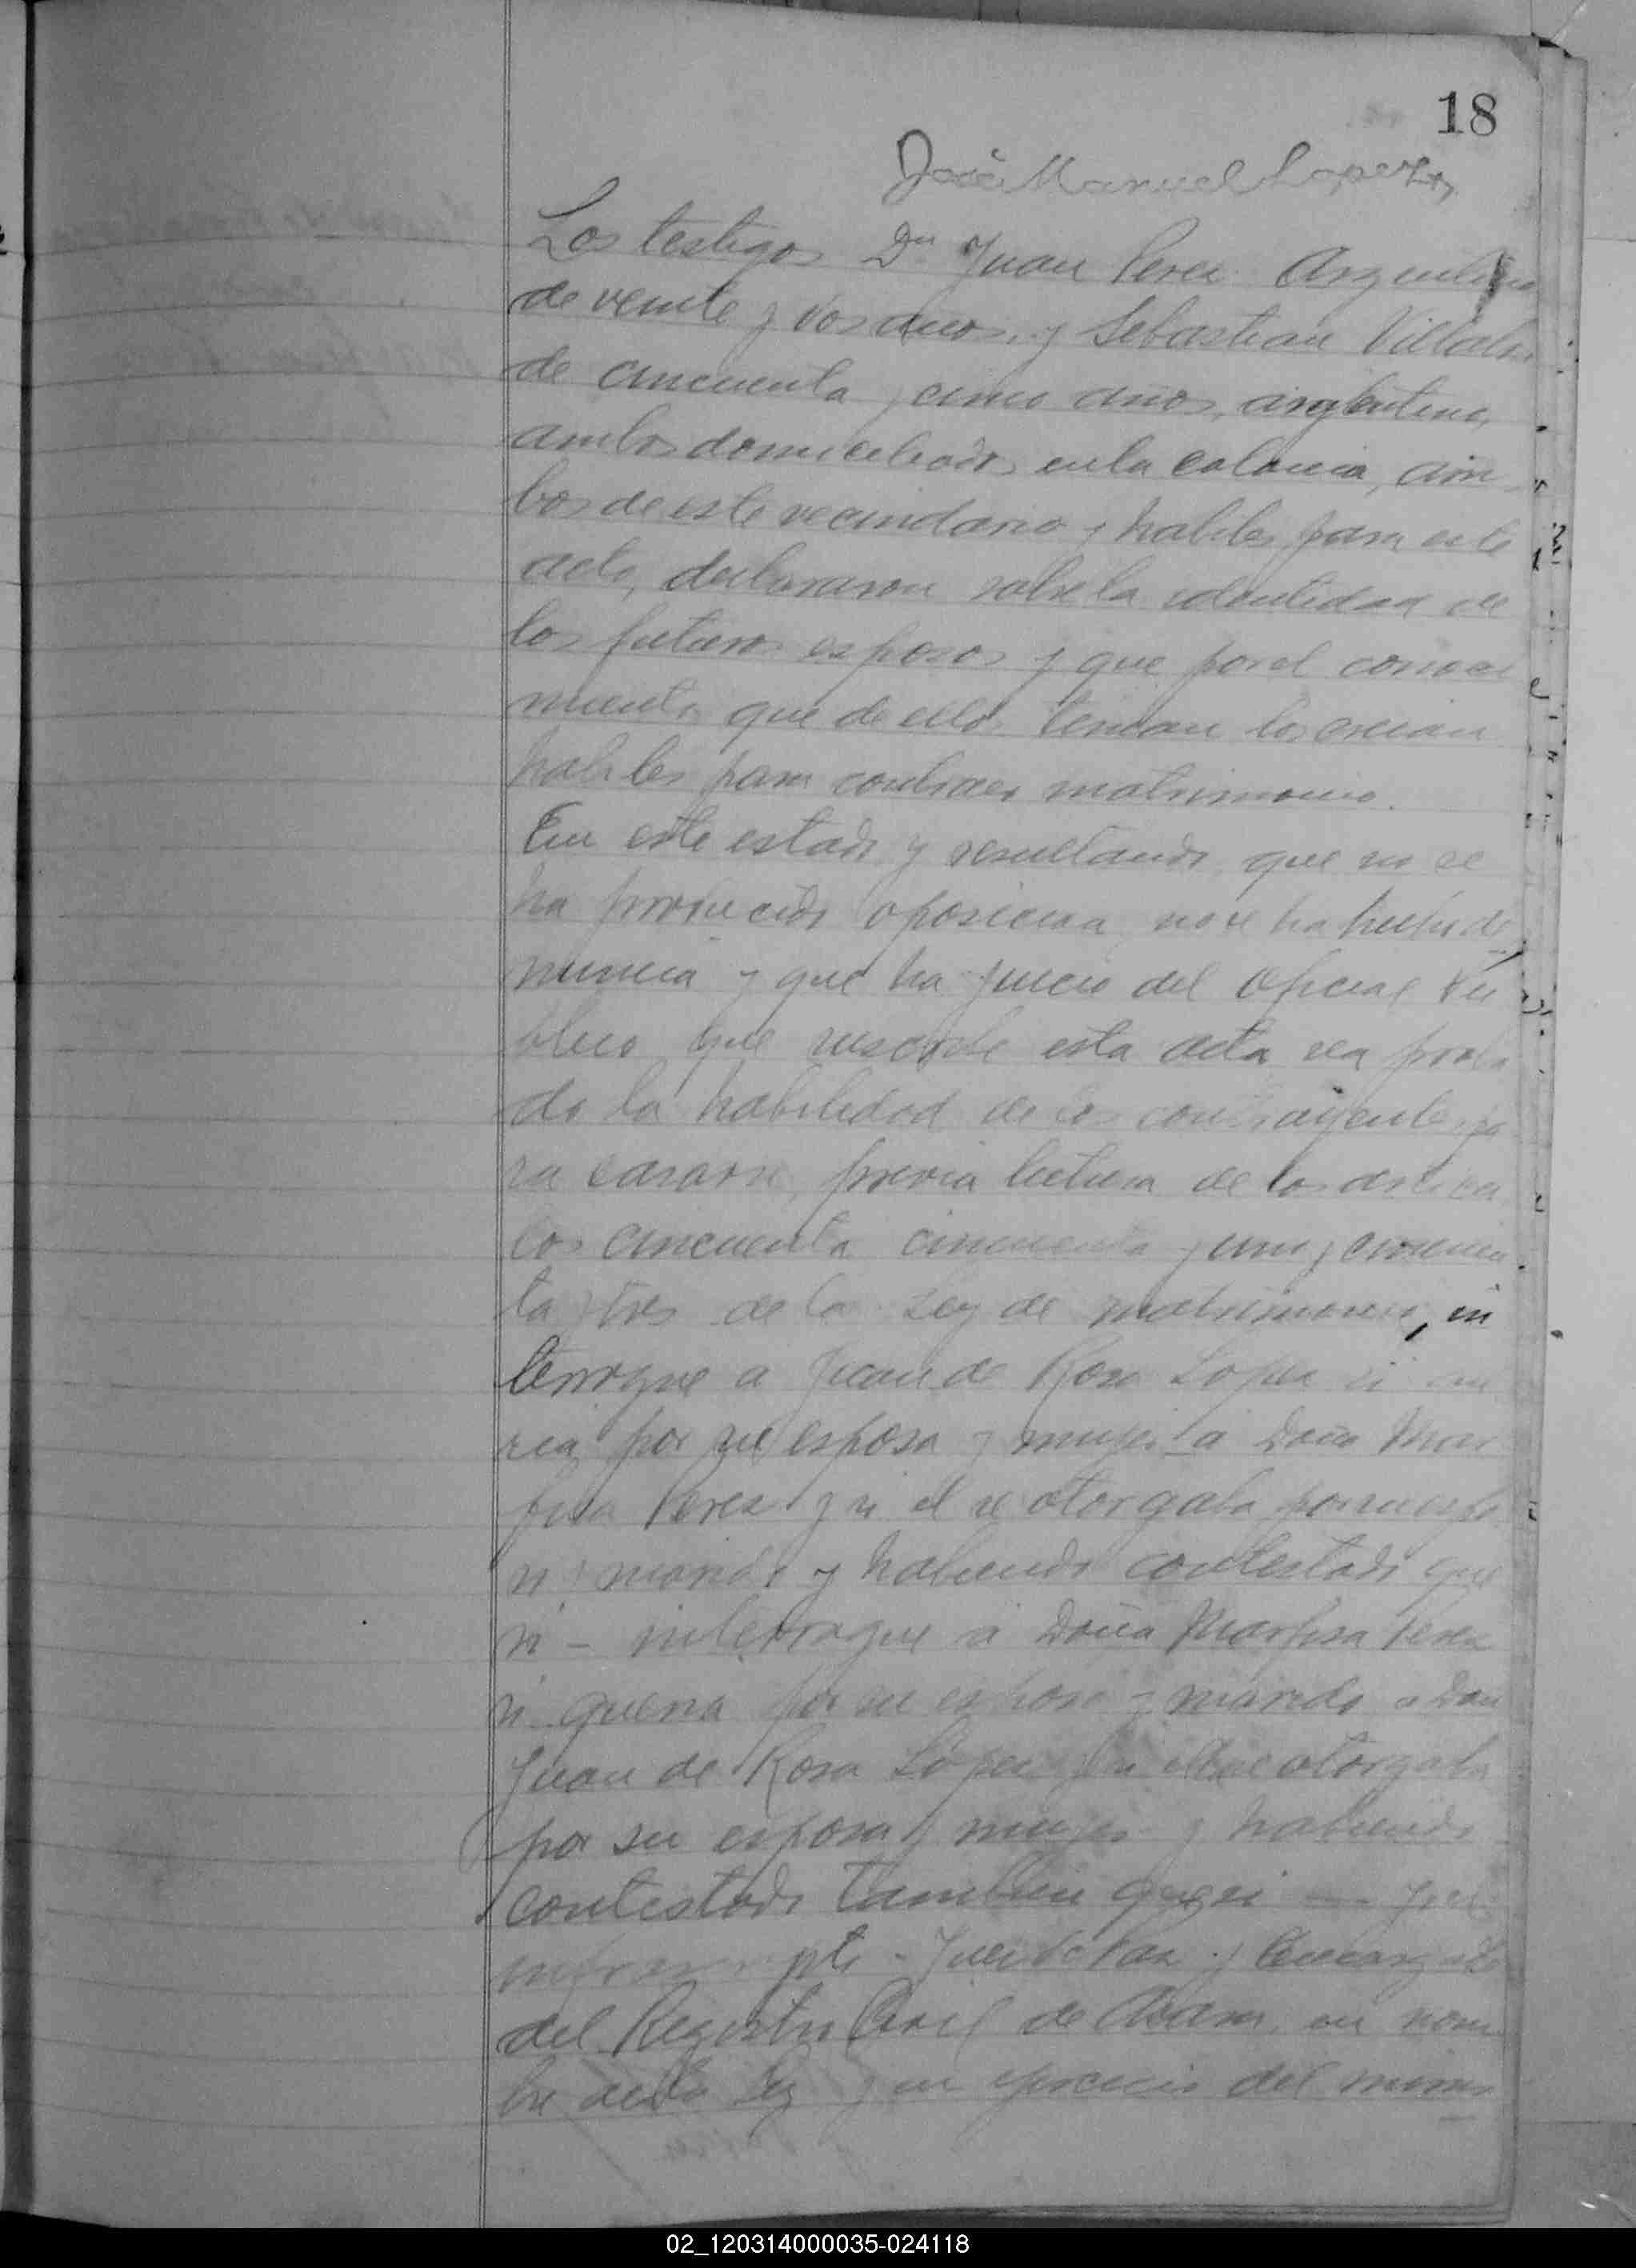 18
José Manuel Lopez
Los testigos Dn Juan Perez Argentino
de veinte y dos años, y Sebastian Villalva
de cincuenta y cinco años, argentino,
ambos domiciliados en la colonia, am
bos de este vecindario y habiles para este
acto, declararon sobre la identidad de
los futuros esposos y que por el conoci
miento que de ellos tenian los creian
habiles para contraer matrimonio.
En este estado y resultando que no se
ha producido oposicion, no se ha hecho de
nuncia y que ha juicio del oficial Pu
blico que suscribe esta acta sea proba
do la habilidad de los contrayentes pa
ra casarse, previa lectura de los articu
los cincuenta cincuenta y uno y cincuen
ta y tres de la Ley de matrimonio, in
terrogue a Juan de Rosa Lopez si
por su esposa y mujer a Doña Mar
fisa Perez y si el se otorgaba por su espo
so y marido y habiendo contestado que
si – interrogue a Doña Marfisa Perez
si queria por su esposo y marido a Don
Juan de Rosa Lopez y si ella se otorgaba
por su esposa y mujer y habiendo
contestado tambien que si —
Juez de Paz y Encargado
del Registro Civil de en nom
bre de la Ley y en ejercicio del minis
02_120314000035-024118